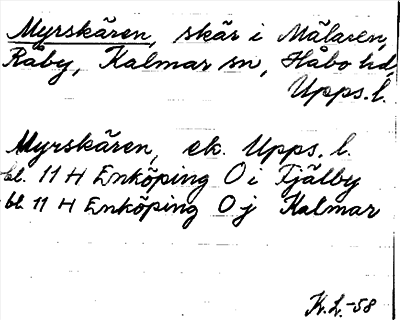 Myrskären, skär i Mälaren,
Råby, Kalmar sn, Håbo hd,
Upps. l.
Myrskären, ek. Upps. l.
bl. 11 H Enköping 0 i Tjälby
bl. 11 H Enköping 0 j Kalmar
K.L. -58